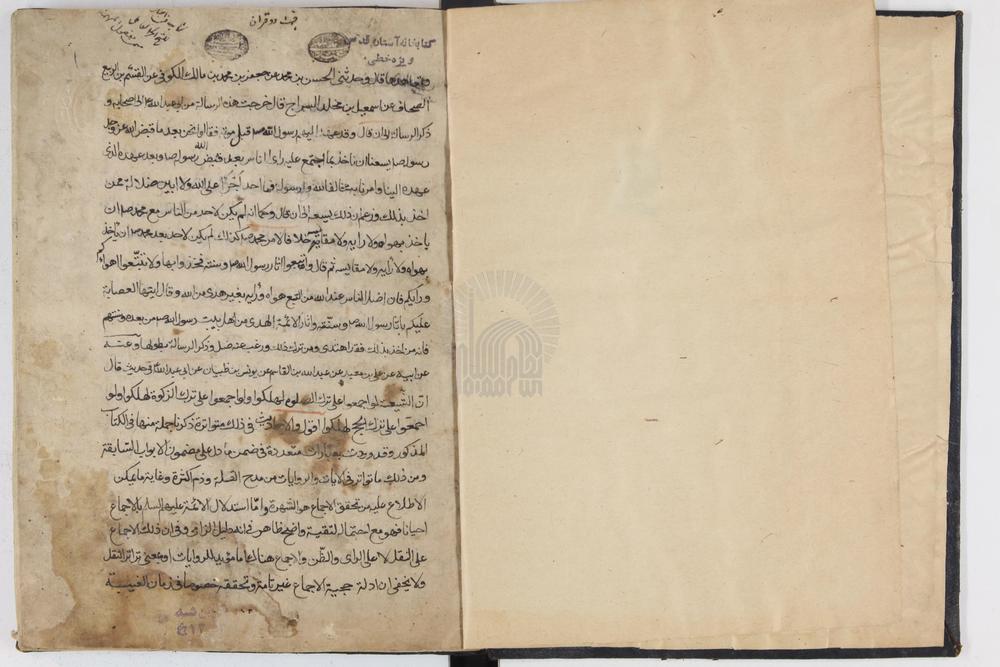 قیمت دو قران
کتابخانه آستان قدس
ویژه خطی
قال وحدثنی الحسن بن محمد عن جعفر بن محمد بن مالک الکوفی عن القسم بن الربیع
الصحاف عن اسمعیل بن مخلد السراج قال خرجت هذه الرسالة من ابی عبدالله الی اصحابه و
ذکر الرسالة الی ان قال وقد عهد الیهم رسول الله ص قبل موته فقالوا نحن بعد ما قبض الله عز وجل
رسوله ص یسعنا ان ناخذ بما اجتمع علیه رای الناس بعد قبض الله رسوله ص وبعد عهده الذی
عهده الینا وامرنا به مخالفا لله ولرسوله فما احد اجرء علی الله ولا ابین ضلالة ممن
اخذ بذلک وزعم ان ذلک یسعه الی ان قال وکما انه لم یکن لاحد من الناس مع محمد ص ان
یاخذ بهواه ولا رایه ولا مقاییسه خلافا لامر محمد ص کذلک لم یکن لاحد بعد محمد ص ان یاخذ
بهواه ولا رایه ولا مقاییسه ثم قال واتبعوا اثار رسول الله ص وسنته فخذوا بها ولا تتبعوا اهواءکم
ورایکم فان اضل الناس عند الله من اتبع هواه ورایه بغیر هدی من الله وقال ایتها العصابة
علیکم باثار رسول الله ص وسنته واثار الائمة الهدی من اهل بیت رسول الله ص من بعده وسنتهم
فانه من اخذ بذلک فقد اهتدی ومن ترک ذلک ورغب عنه ضل وذکر الرسالة بطولها وعنه
عن ابیه عن علی بن معبد عن عبدالله بن القاسم عن یونس بن ظبیان عن ابی عبدالله فی حدیث قال
ان الشیعة لو اجمعوا علی ترک الصلوة لهلکوا ولو اجمعوا علی ترک الزکوة لهلکوا ولو
اجمعوا علی ترک الحج لهلکوا اقول والاحادیث فی ذلک متواترة ذکرنا جملة منها فی الکتاب
المذکور وقد وردت بعبارات متعددة فی ضمن ما دل علی مضمون الابواب السابقة
ومن ذلک ما تواتر فی الایات والروایات من مدح القلة وذم الکثرة وغایة ما یمکن
الاطلاع علیه من تحقق الاجماع هو الشهرة واما استدلال الائمة علیهم السلم بالاجماع
احیانا فهو مع احتماله للتقیة واضح ظاهر فی انه دلیل الزامی وفی ان ذلک الاجماع
علی النقل لا علی الرای والظن والاجماع هناک مؤید للروایات او بمعنی تواتر النقل
ولا یخفی ان ادلة حجیة الاجماع غیر تامة وتحققه خصوصا فی زمان الغیبة